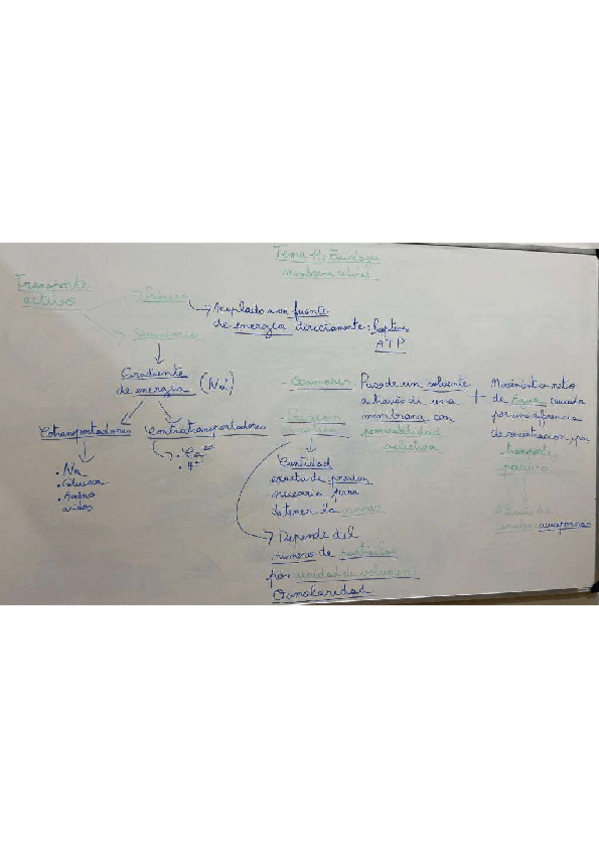 Tema 11: Fisiología
membrana celular
Transporte
activo
Primario
Acoplado a una fuente
de energía direccionante:
ATP
Secundario
Gradiente
de energía (Na⁺)
Cotransportadores
• Na
• Glucosa
• Amino
acidos
Contratransportadores
• Ca²⁺
• H⁺
- Osmosis: Paso de un solvente
a través de una
membrana con
permeabilidad
selectiva
+
Movimiento neto
de agua causado
por una diferencia
de concentracion, por
transporte
pasivo
A través de
canales acuaporinas
- Presion
osmótica
Cantidad
exacta de presion
necesaria para
detener la osmosis
Depende del
numero de particulas
por unidad de volumen
Osmolaridad